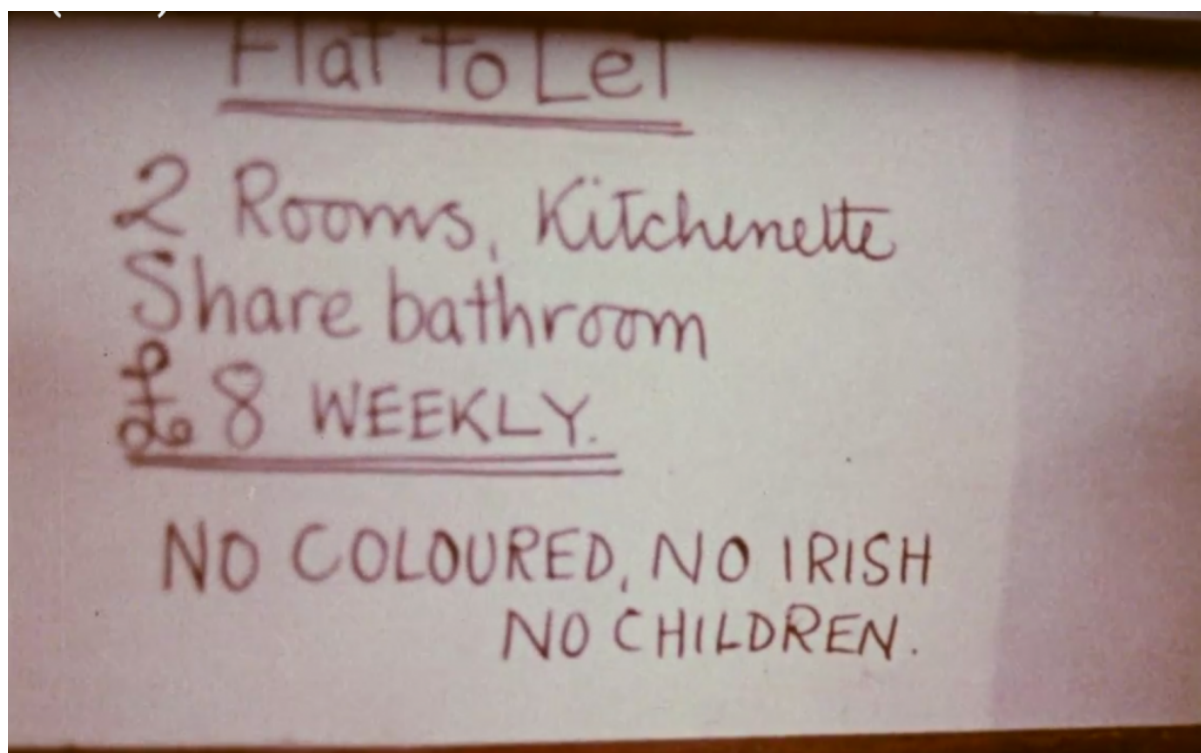 Flat To Let
2 Rooms, Kitchenette
Share bathroom
£ 8 WEEKLY.
NO COLOURED, NO IRISH
NO CHILDREN.